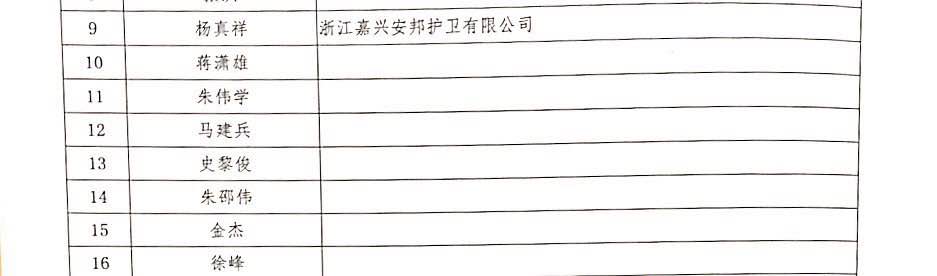 9 杨真祥 浙江嘉兴安邦护卫有限公司
10 蒋潇雄
11 朱伟学
12 马建兵
13 史黎俊
14 朱邵伟
15 金杰
16 徐峰